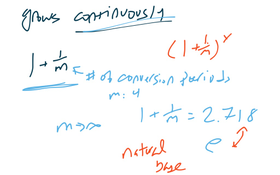 grows continuously
(1+1/m)^x
1+1/m
# of conversion periods
m: 4
m→∞
1+1/m = 2.718
natural
base
e